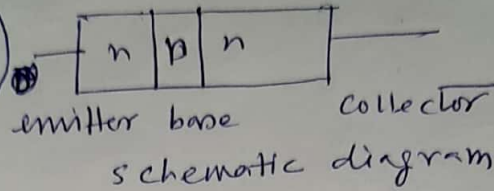 n p n
emitter base collector
schematic diagram